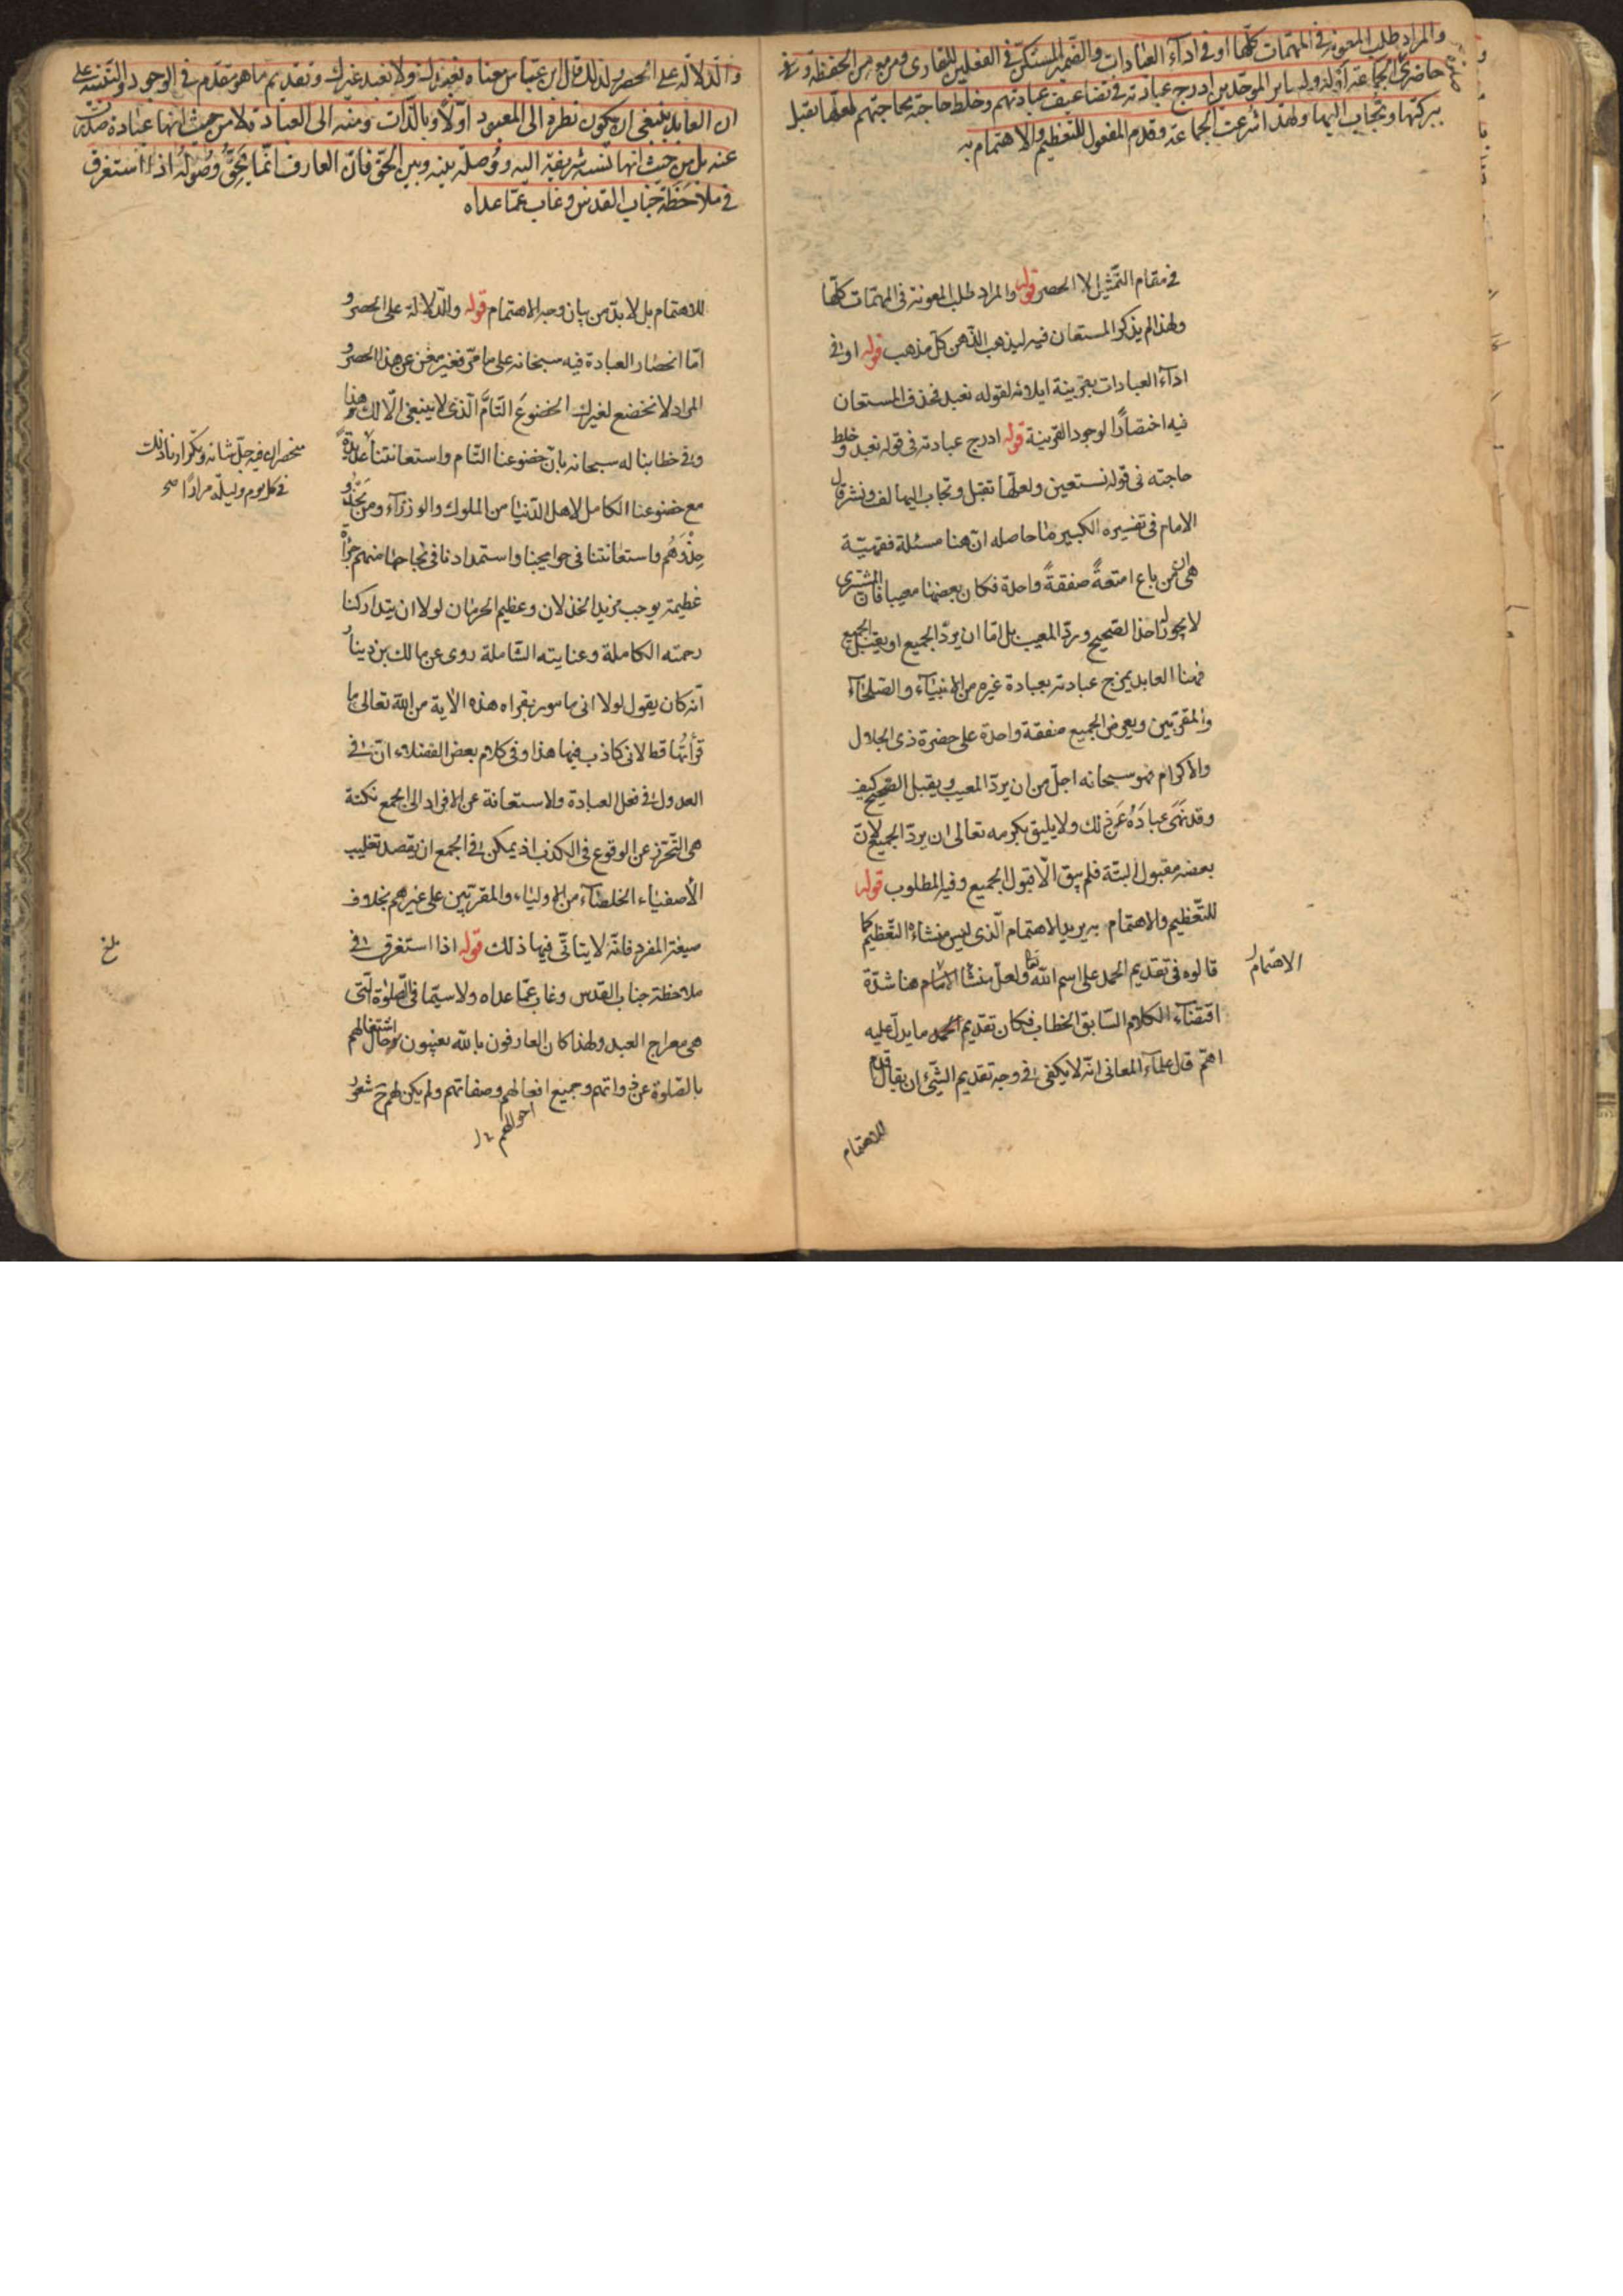 والمراد طلب المعونة في المهمات كلها او في اداء العبادات والضمير المستكن في الفعلين للقارى ومن معه من الحفظة و
حاضرى الجماعة اوله ولساير الموحدين ادرج عبادته في تضاعيف عبادتهم وخلط حاجته بحاجتهم لعلها تقبل
ببركتها وتجاب اليها ولهذا اشرعت الجماعة وقدم المفعول للتعظيم والاهتمام به
في مقام التمثيل لا الحصر قوله والمراد طلب المعونة في المهمات كلها
ولهذا لم يذكر المستعان فيه ليذهب الذهن كل مذهب قوله او في
اداء العبادات بقرينة ايلائه لقوله نعبد فحذف المستعان
فيه اختصارًا لوجود القرينة قوله ادرج عبادته في قوله نعبد وخلط
حاجته في قوله نستعين ولعلها تقبل وتجاب اليها لف ونشر قال
الامام في تفسيره الكبير ما حاصله ان هنا مسئلة فقهيّة
هي ان من باع امتعةً صفقةً واحدة فكان بعضها معيبا فان المشترى
لا يجوز له اخذ الصحيح ورد المعيب بل اما ان يردّ الجميع او يقبل الجميع
فهنا العابد يمزج عبادته بعبادة غيره من الانبياء والصلحاء
والمقربين ويعرض الجميع صفقة واحدة على حضرة ذى الجلال
والاكرام فهو سبحانه اجل من ان يرد المعيب ويقبل الصحيح كيف
وقد نهى عباده عن ذلك ولا يليق بكرمه تعالى ان يرد الجميع لان
بعضه مقبول البتة فلم يبق الا قبول الجميع وفيه المطلوب قوله
للتعظيم والاهتمام به يريد الاهتمام الذى ليس منشاءه التعظيم كما
قالوه في تقديم الحمد على اسم الله تعا ولعل منشا الاهتمام هنا شدة
الاهتمام
اقتضاء الكلام السابق الخطاب فكان تقديم ما يدل عليه
اهم قال علماء المعانى انه لا يكفى في وجه تقديم الشئ ان يقال قدم
للاهتمام
والدلالة على الحصر ولذلك قال ابن عباس معناه نعبدك ولا نعبد غيرك وتقديم ما هو مقدم في الوجود والتنبيه على
ان العابد ينبغى ان يكون نظره الى المعبود اولًا وبالذات ومنه الى العبادة لا من حيث انها عبادة صدرت
عنه بل من حيث انها نسبة شريفة اليه ووصلة بينه وبين الحق فان العارف انما يحق وصوله اذا استغرق
في ملاحظة جناب القدس وغاب عما عداه
للاهتمام بل لا بد من بيان وجه الاهتمام قوله والدلالة على الحصر و
امّا انحصار العبادة فيه سبحانه على ما مر فغير مغن عن هذا الحصر و
المراد لا نخضع لغيرك الخضوع التام الذى لا ينبغى الا لك هذا
وفي خطابنا له سبحانه بان خضوعنا التام واستعانتنا
منحصران فيه جل شانه وتكرارنا ذلك
في كل يوم وليلة مرارًا صح
مع خضوعنا الكامل لاهل الدنيا من الملوك والوزراء ومن يحذو
حذوهم واستعانتنا في حوايجنا واستمدادنا في نجاحها منهم جرأة
عظيمة يوجب مزيد الخذلان وعظيم الحرمان لولا ان يتداركنا
رحمته الكاملة وعنايته الشاملة روى عن مالك بن دينار
انه كان يقول لولا انى مامور بقراءة هذه الآية من الله تعالى ما
قرأتها قط لانى كاذب فيها هذا وفي كلام بعض الفضلاء ان في
العدول في فعل العبادة والاستعانة عن الافراد الى الجمع نكتة
هى التحرز عن الوقوع في الكذب اذ يمكن في الجمع ان يقصد تغليب
الأصفياء الخلصاء من الاولياء والمقربين على غيرهم بخلاف
صيغة المفرد فانه لا يتاتى فيها ذلك قوله اذا استغرق في
بلغ
ملاحظة جناب القدس وغاب عما عداه ولا سيما في الصلوة التى
هى معراج العبد ولهذا كان العارفون بالله يغيبون حال اشتغالهم
بالصلوة عن ذواتهم وجميع افعالهم وصفاتهم ولم يكن لهم ح شعور
احوالهم